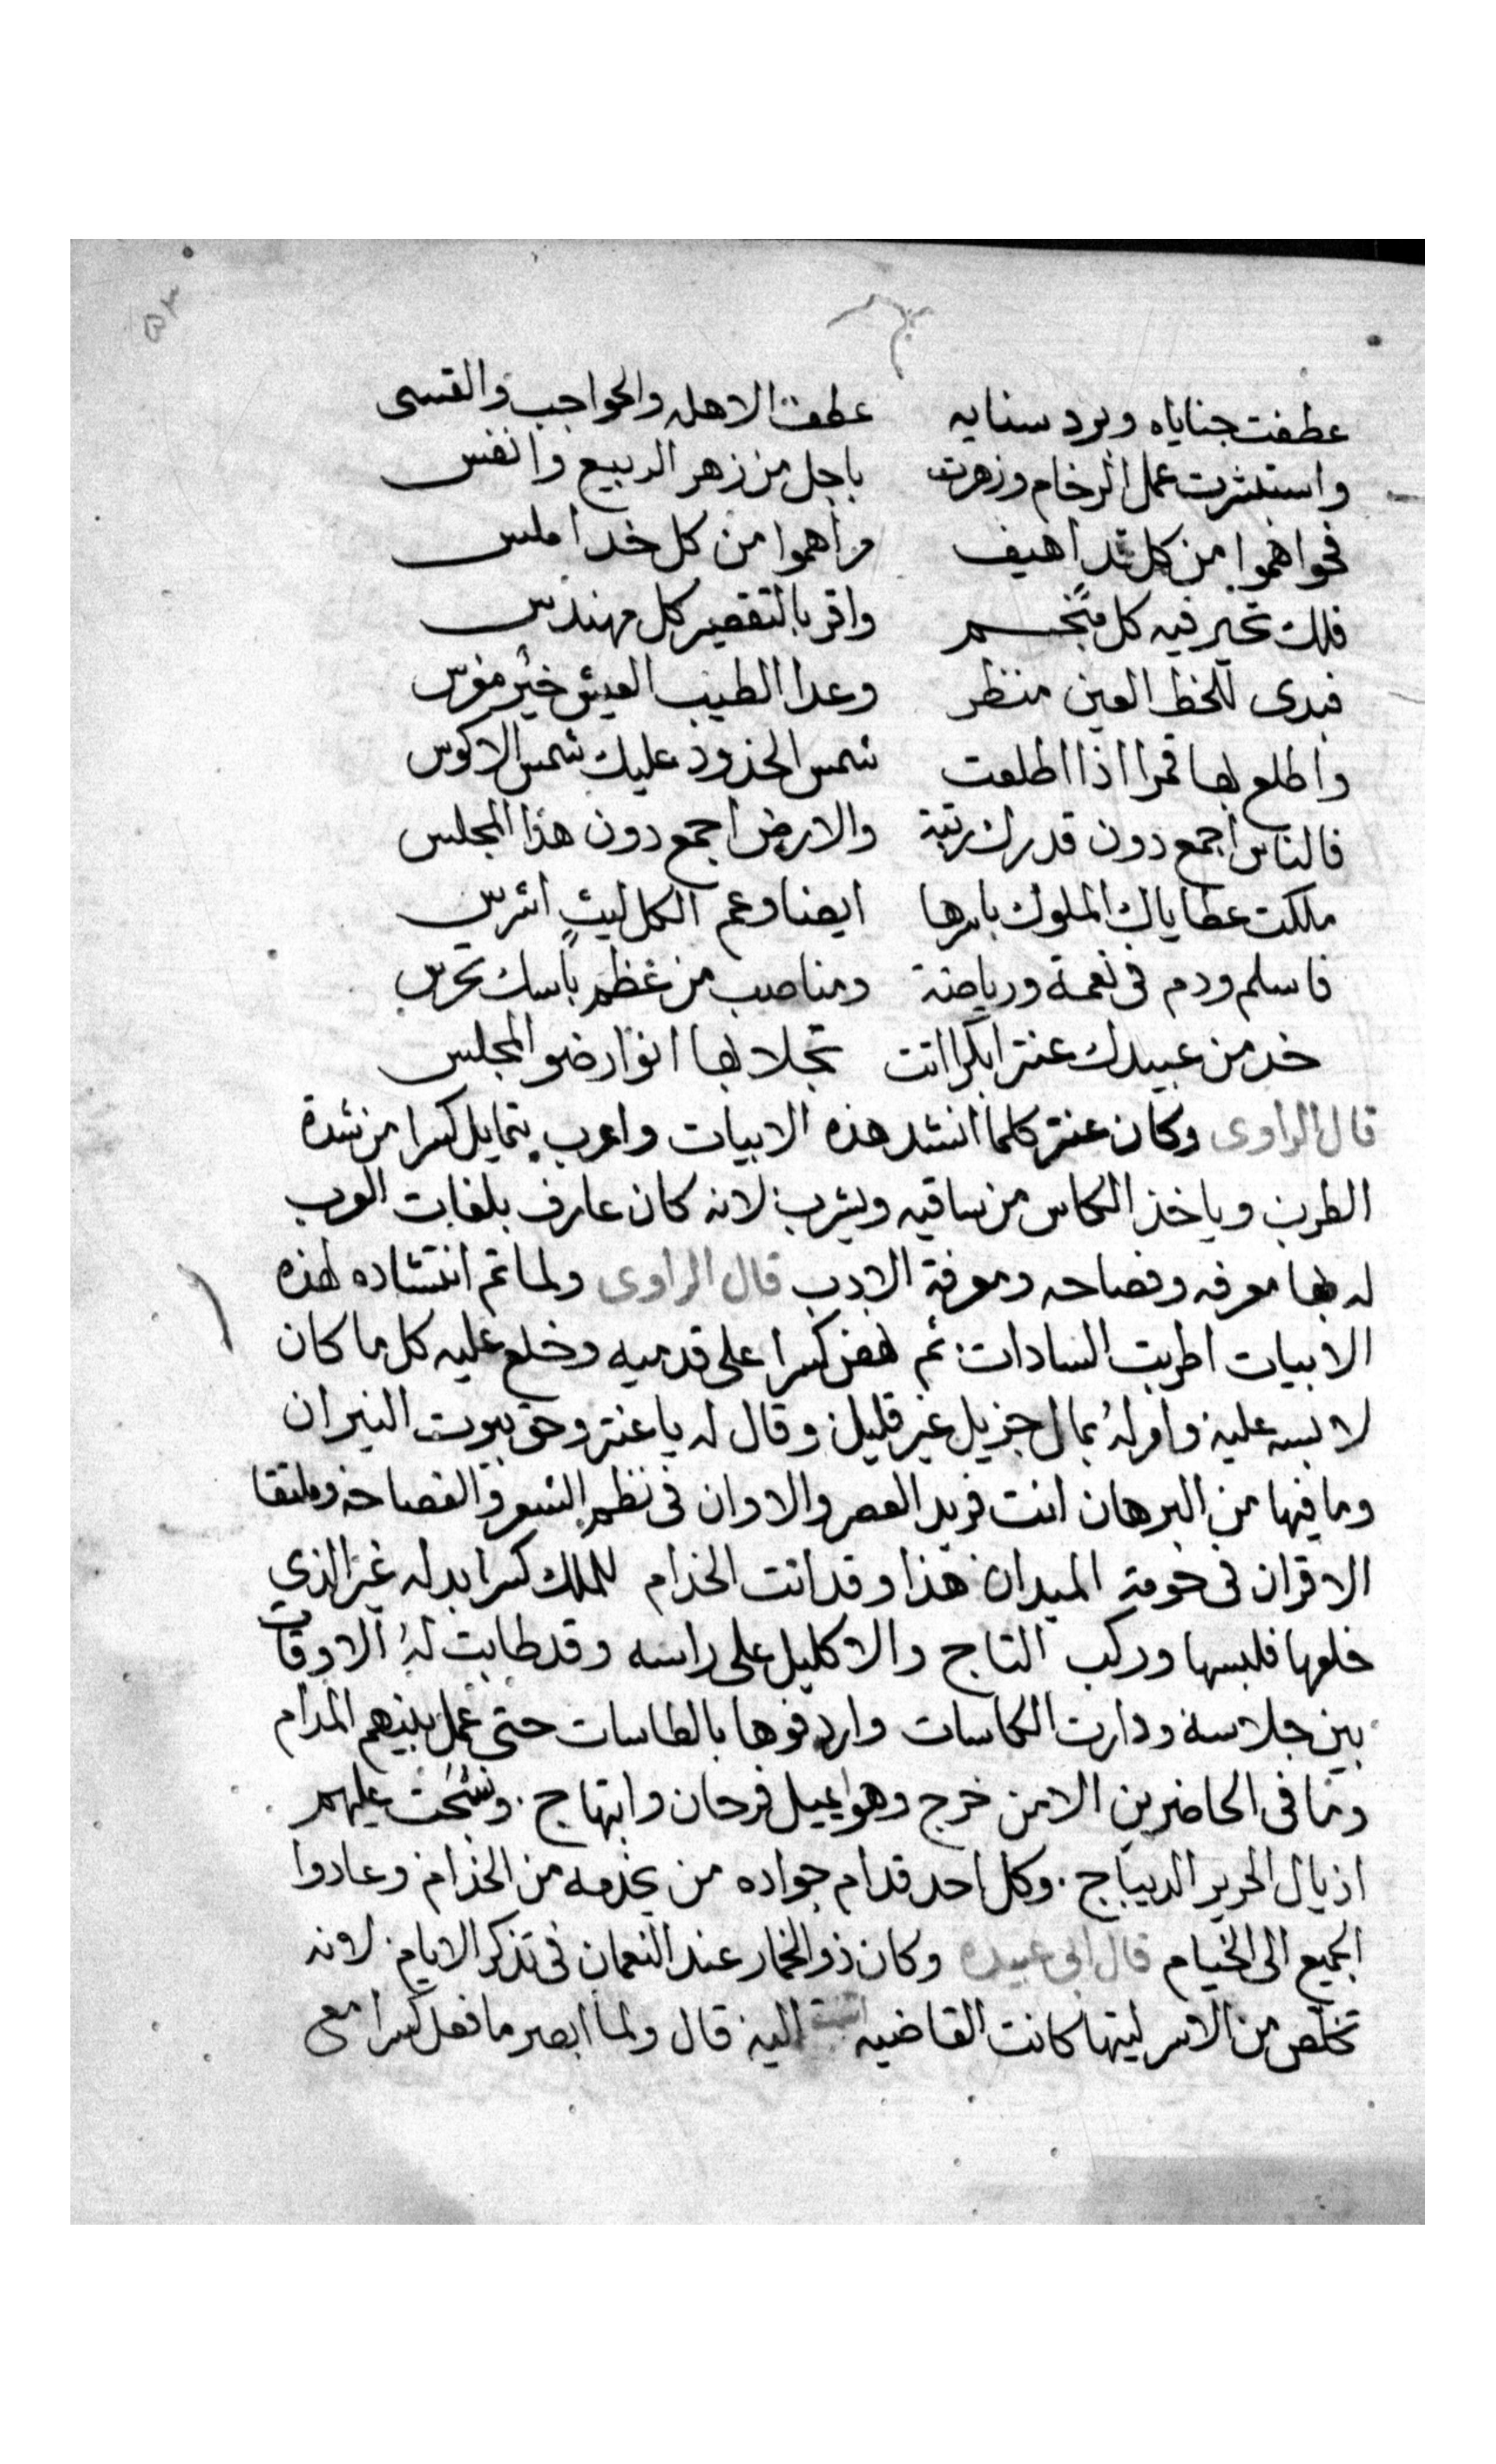 عطفت جناياه وبرد سنايه عطفت الاهله والحواجب والقسى
واستبشرت عمل الرخام وزهرت باجل من زهر الربيع وانفس
فحواهموا من كل اهيف وراهموا من كل خد املس
فلك تحير فيه كل منجم واقر بالتقصير كل مهندس
فبدى للحظ العين منظر وعدا الطيب العيش خير
واطلع بها قمرا اذا اطلعت شمس الخدود عليك شمس الاكوس
فالناس اجمع دون قدرك رتبة والارض اجمع دون هذا المجلس
ملكت عطاياك الملوك باسرها ايضا وعم الكل ليث اشرس
فاسلم ودم فى نعمة ورياضة ومناصب من عظم باسك تحرس
خد من عبيدك عنتر ابكرا اتت تجلا بها انوار ضو المجلس
قال الراوى وكان عنتر كلما انشد هذه الابيات واعرب يتمايل كسرا من شدة
الطرب وياخذ الكاس من ساقيه ويشرب لانه كان عارف بلغات العرب
له بها معرفه وفصاحه ومعرفة الادب قال الراوى ولما تم انتشاده لهذه
الابيات اطربت السادات ثم نهض كسرا على قدميه وخلع عليه كل ما كان
لابسه عليه وامر له بمال جزيل غير قليل وقال له يا عنتر وحق بيوت النيران
وما فيها من البرهان انت فريد العصر والاوان فى نظم الشعر والفصاحه وملتقا
الاقران فى حومة الميدان هذا وقد اتت الخدام للملك كسرا بدله غير الذي
خلعها فلبسها وركب التاج والاكليل على راسه وقد طابت له الاوقات
بين جلاسه ودارت الكاسات واردفوها بالطاسات حتى عمل بينهم المدام
وما فى الحاضرين الا من خرج وهو يميل فرحان وابتهاج وسحت عليهم
اذيال الحرير الديباج وكل احد قدام جواده من يخدمه من الخدام وعادوا
الجميع الى الخيام قال ابى عبيده وكان ذو الخمار عند النعمان فى تذكر الايام لانه
تخلص من الاسر ليتها كانت القاضيه اليه قال ولما ابصر ما فعل كسرا مع